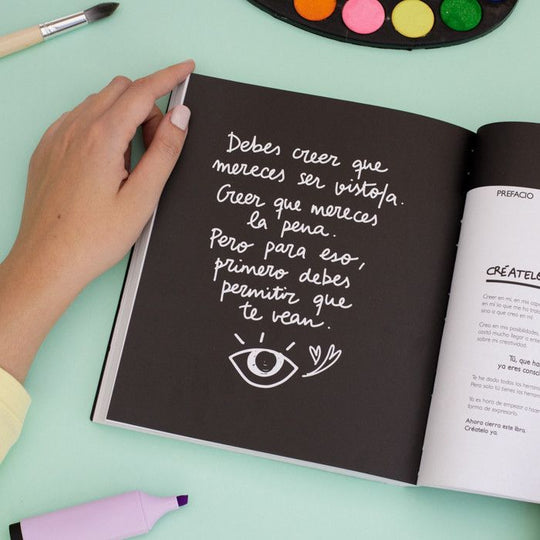 Debes creer que
mereces ser visto/a.
Creer que mereces
la pena.
Pero para eso,
primero debes
permitir que
te vean.
PREFACIO
CRÉATELO
Creer en mí, en mis
en mí lo que me ha
uno a que crea en mí
Crea en mis posibilidades,
costó mucho llegar a
sobre mi creatividad.
Tú, que
ya eres
Te he dado todas las
Pero solo tú tienes las
Ya es hora de empezar a
forma de expresarlo.
Ahora cierra este libro.
Créatelo ya.